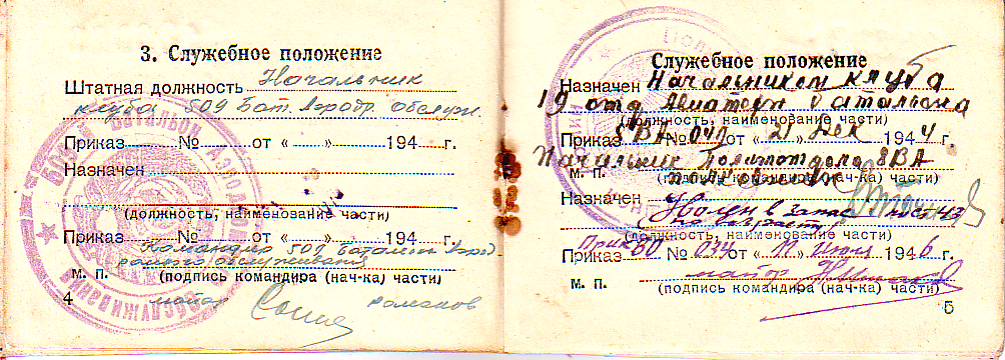 3. Служебное положение
Штатная должность Начальник
клуба 509 Бат. Аэродр. обслуж.
Приказ № от « » 194 г.
Назначен
(должность, наименование части)
Приказ № от « » 194 г.
Командир 509 Батальон Аэрод
ромного обслуживания
м. п. (подпись командира (нач-ка) части)
4 майор романов
509 БАТАЛЬОН АЭРОДРОМНОГО ОБСЛУЖИВАНИЯ
Служебное положение
Назначен Начальником клуба
19 отд Авиатехн батальона
(должность, наименование части)
Приказ 8ВА № 040 от « 21 » Дек 1944 г.
Начальник Политотдела 8ВА
полковник
м. п. (подпись командира (нач-ка) части)
Назначен
Уволен в запас по ст 43
(должность, наименование части)
Приказ № 034 от « 11 » 1946 г.
майор
м. п. (подпись командира (нач-ка) части)
5